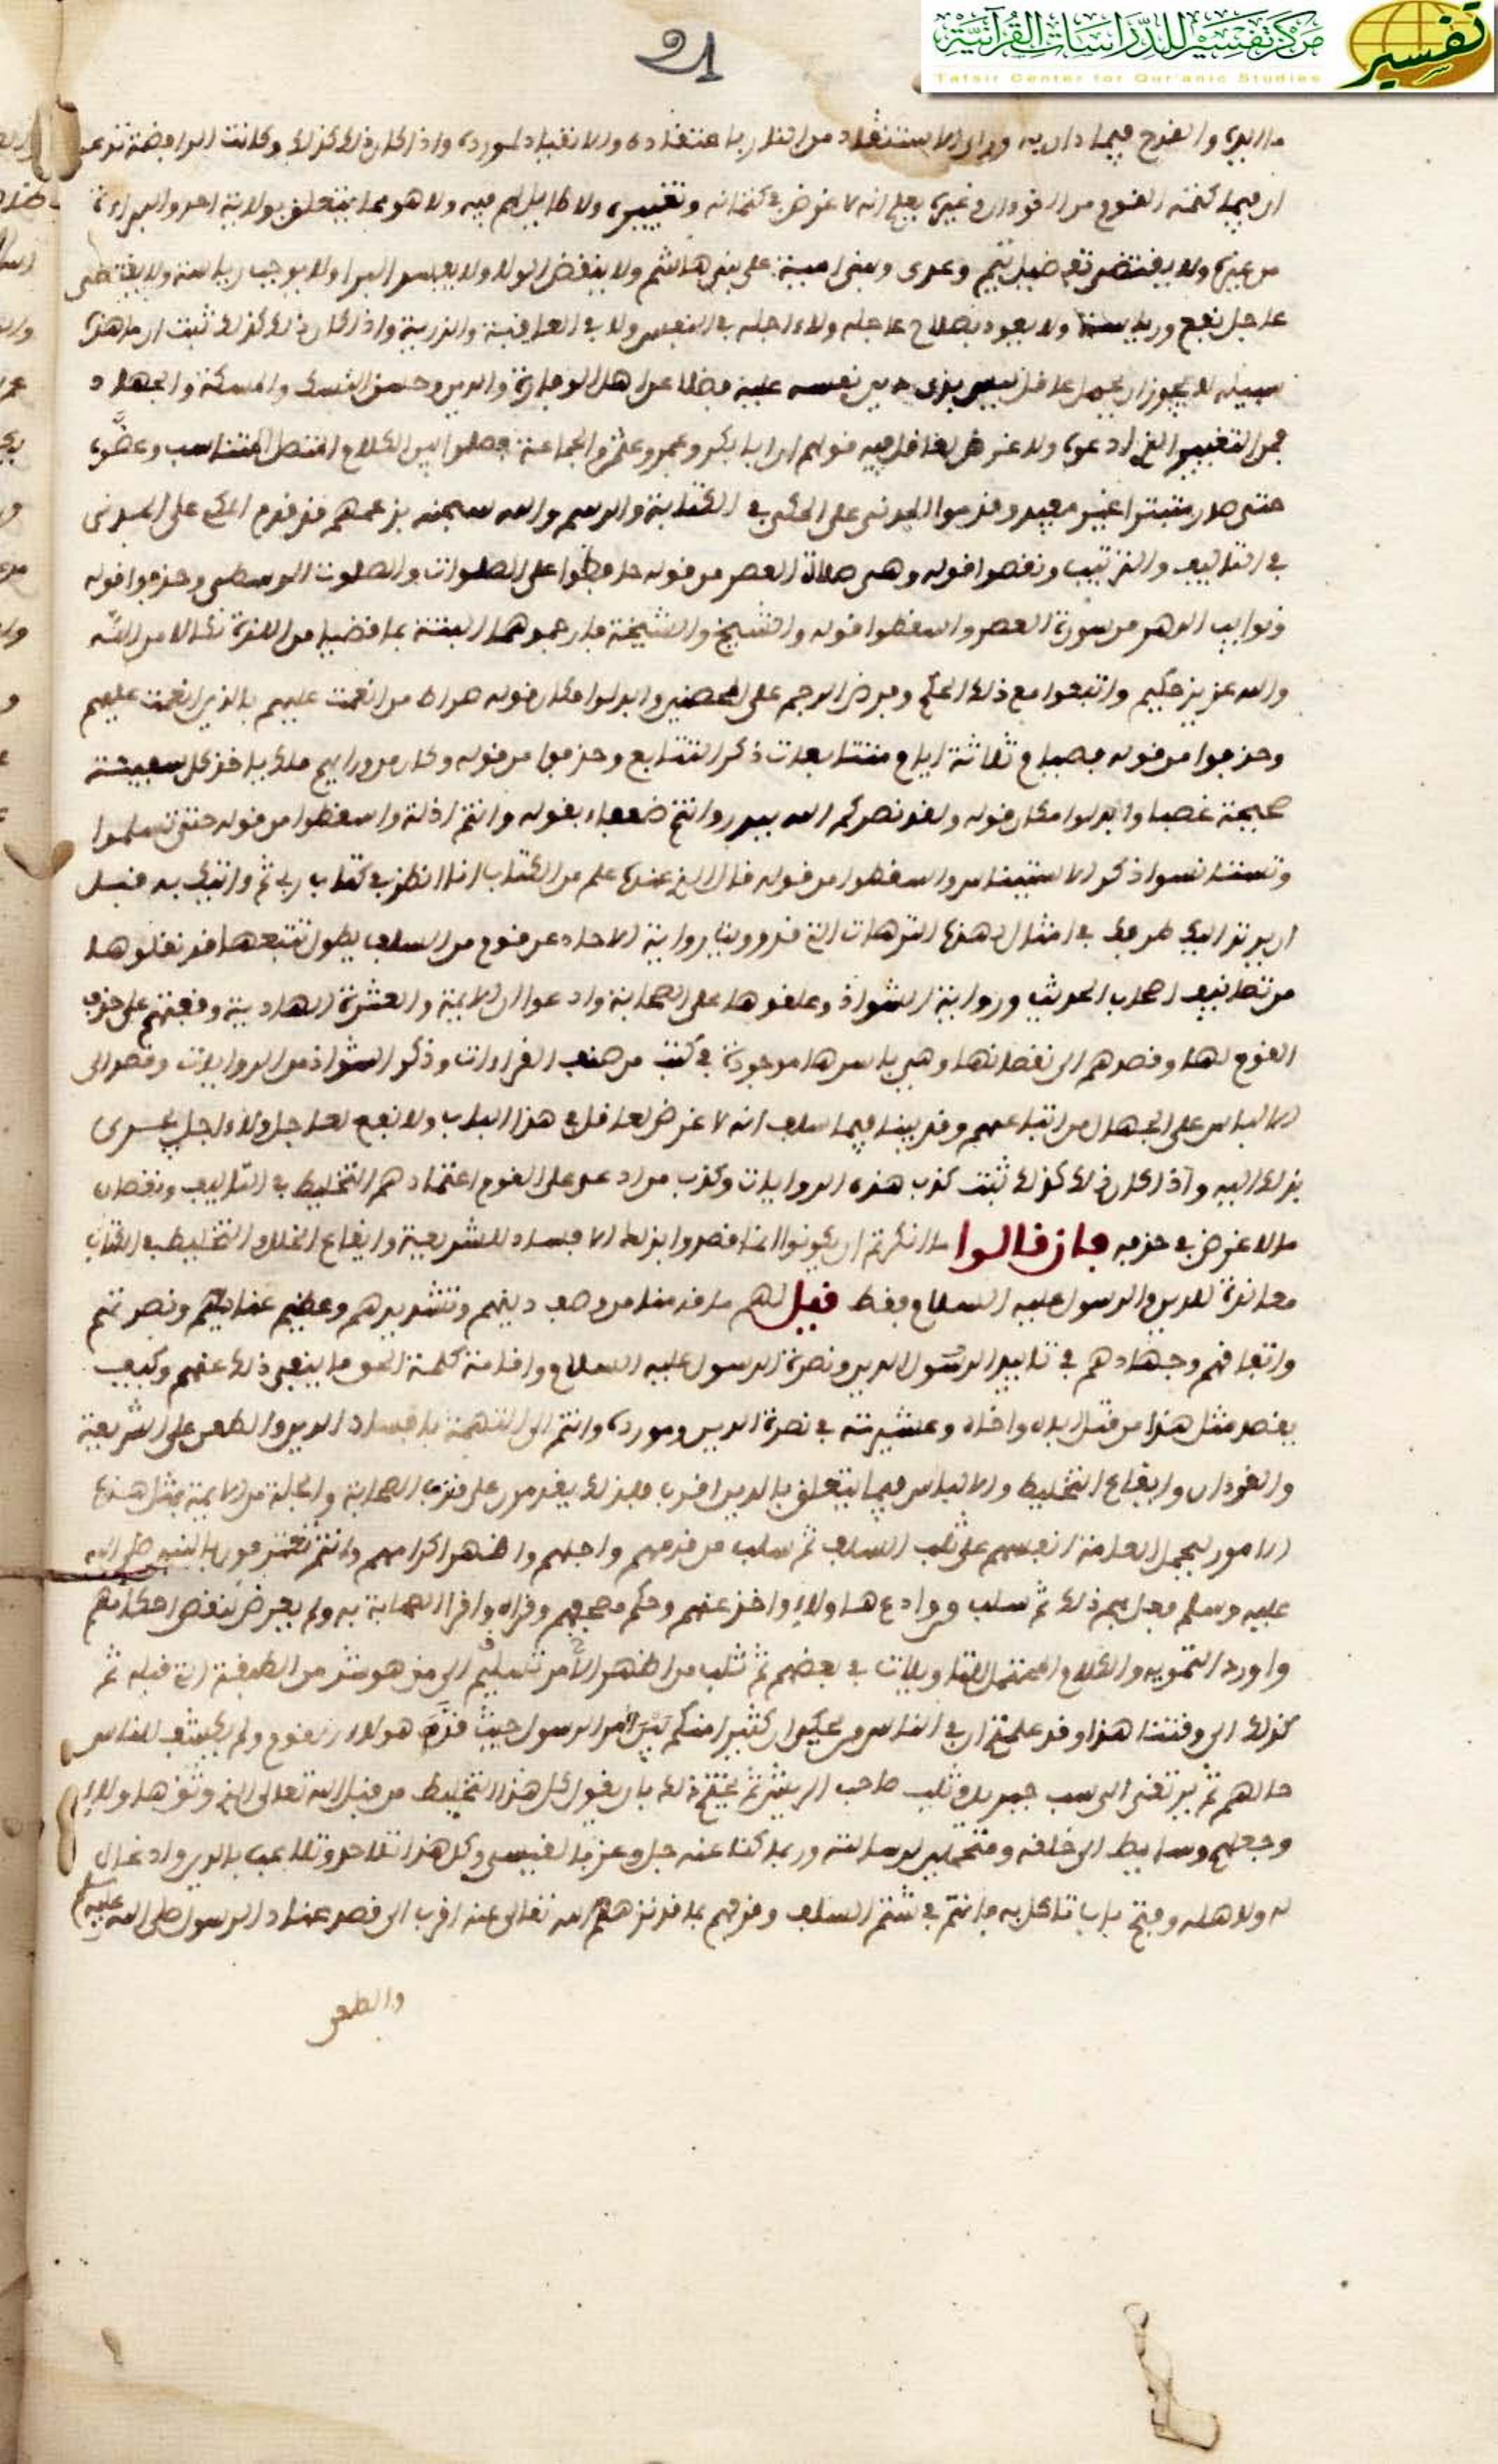 مركز تفسير للدراسات القرآنية
تفسير
Tafsir Center for Qur'anic Studies
21
والقدح فيما دان به من النار باعتقاده والانقياد لمورده وإذا كان ذلك كذلك وكانت الرافضة تزعم
أن فيما كتمه القوم من القرءان وغيره يعلم أنه لا غرض في كتمانه وتغييره ولا طايل لهم فيه ولا هو مما يتعلق بولاية أحد والبراءة
من غيره ولا يقتضي تفضيل تيم وعدى وبنى امية على بني هاشم ولا ينقض الولا ولا يوجب رياسة ولا يقتضي
عاجل نفع ورياسة ولا يعود بصلاح عاجله ولا ءاجله في النفس ولا في العاقبة والذرية وإذا كان ذلك كذلك ثبت ان ما هذه
سبيله لا يجوز ان يحمل عاقل نفسه عليه فضلا عن اهل الوفارة والدين وحسن النسك والمسكة والجهاد
فمن التغيير الذي ادعوه ولا غرض لعاقل فيه قولهم ان ابا بكر وعمر وعثمن والجماعة فصلوا بين الكلام المتصل المتناسب
حتى صار مبتترا غير مفيد وقدموا المدنى على المكى في الكتابة والرسم والله سبحنه بزعمهم قد قدم المكى على المدنى
في التاليف والترتيب ونقصوا قوله وهى صلاة العصر من قوله حافظوا على الصلوات والصلوت الوسطى وحذفوا قوله
ونوايب الدهر من سورة العصر واسقطوا قوله والشيخ والشيخة فارجموهما البتة بما قضيا من اللذة نكالا من الله
والله عزيز حكيم واتبعوا مع ذلك الحكم وفرض الرجم على المحصنين وابدلوا مكان قوله صراط من انعمت عليهم بالذين انعمت عليهم
وحذفوا من قوله فصيام ثلاثة ايام متتابعات ذكر التتابع وحذفوا من قوله وكان من ورايهم ملك ياخذ كل سفينة
صحيحة غصبا وابدلوا مكان قوله ولقد نصركم الله ببدر وانتم ضعفاء بقوله وانتم اذلة واسقطوا من قوله حتى تسلموا
وتستانسوا ذكر الاستيناس واسقطوا من قوله قال الذي عنده علم من الكتاب انا انظر في كتاب ربى ثم واتيك به قبل
ان يرتد اليك طرفك في امثال لهذه الترهات التي قد رووتا برواية الاحاد عن قوم من السلف يطول تتبعها قد نقلوها
من تصانيف اصحاب الحديث ورواية الشواذ وعلقوها على الصحابة وادعوا ان الايمة والعشرة الهادية وقفتهم على حذف
القوم لها وقصدهم الى نقصانها وهي باسرها موجودة في كتب من صنف القراءات وذكر الشواذ من الروايات وقصد الى
الالباس على الجهال من اتباعهم وقد بينا فيما سلف انه لا غرض لعاقل في هذا الباب ولا نفع لعاجل ولا ءاجل يجري
بذلك اليه وإذا كان ذلك كذلك ثبت كذب هذه الروايات وكذب من ادعى على القوم اعتمادهم التخليط في التاليف ونقصان
ما لا غرض في حذفه فان قالوا ما انكرتم ان يكونوا انما قصدوا بذلك الافساد للشريعة وايقاع الخلاف والتخليط في الكتاب
معاندة للدين والرسول عليه السلام وفقط قيل لهم ما قدمنا من وصف دينهم وتشديدهم وعظيم عنايتهم ونصرتهم
واتفاقهم وجهادهم في تاييد الدين ونصرة الرسول عليه السلام واقامة كلمة الحق ما ينفى ذلك عنهم وكيف
يقصد مثل هذا من قتل اباه واخاه وعشيرته في نصرة الدين ومورده وانتم الى التهمة بافساد الدين والطعن على الشريعة
والقرءان وايقاع التخليط والالباس فيما يتعلق بالدين اقرب فلذلك يقدمون على قذف الصحابة والجلة من الايمة بمثل هذه
الامور ليحمل العامة انفسهم على ثلب السلف ثم سلب من قدمهم واجلهم واظهر اكرامهم وانتم تعترفون بالنبي صلى الله
عليه وسلم فعل بهم ذلك ثم سلب من وادع هاولاء واخذ عنهم وحكم وقراه واقرا الصحابة به ولم يعرض لنقض احكامهم
واورد التمويه والكلام المحتمل للتاويلات في بعضهم ثم ثلب من اظهر الامر الى من هو شر من الطبقة التي قبله ثم
كذلك الى وقتنا هذا وقد علمتم ان في الناس من يحكى ان كثيرا منكم امر الرسول حيث قدم هولاء القوم ولم يكشف للناس
حالهم ثم يرتقى الى سب جبريل وثلب صاحب الريش ثم يختم ذلك بان يقول كل هذا التخليط من قبل الله تعالى الذي وثق هاولاء
وجعلهم وسايط الى خلقه ومتحملين لرسالته وربما كنا عنه جل وعز بالفيسى وكل هذا تلاحد وتلاعب بالدين وادغال
له ولاهله وفتح باب تاكل به فانتم في شتم السلف وقذفهم بما قد نزههم الله تعالى عنه اقرب الى قصد عناد الرسول صلى الله عليه
والطعن